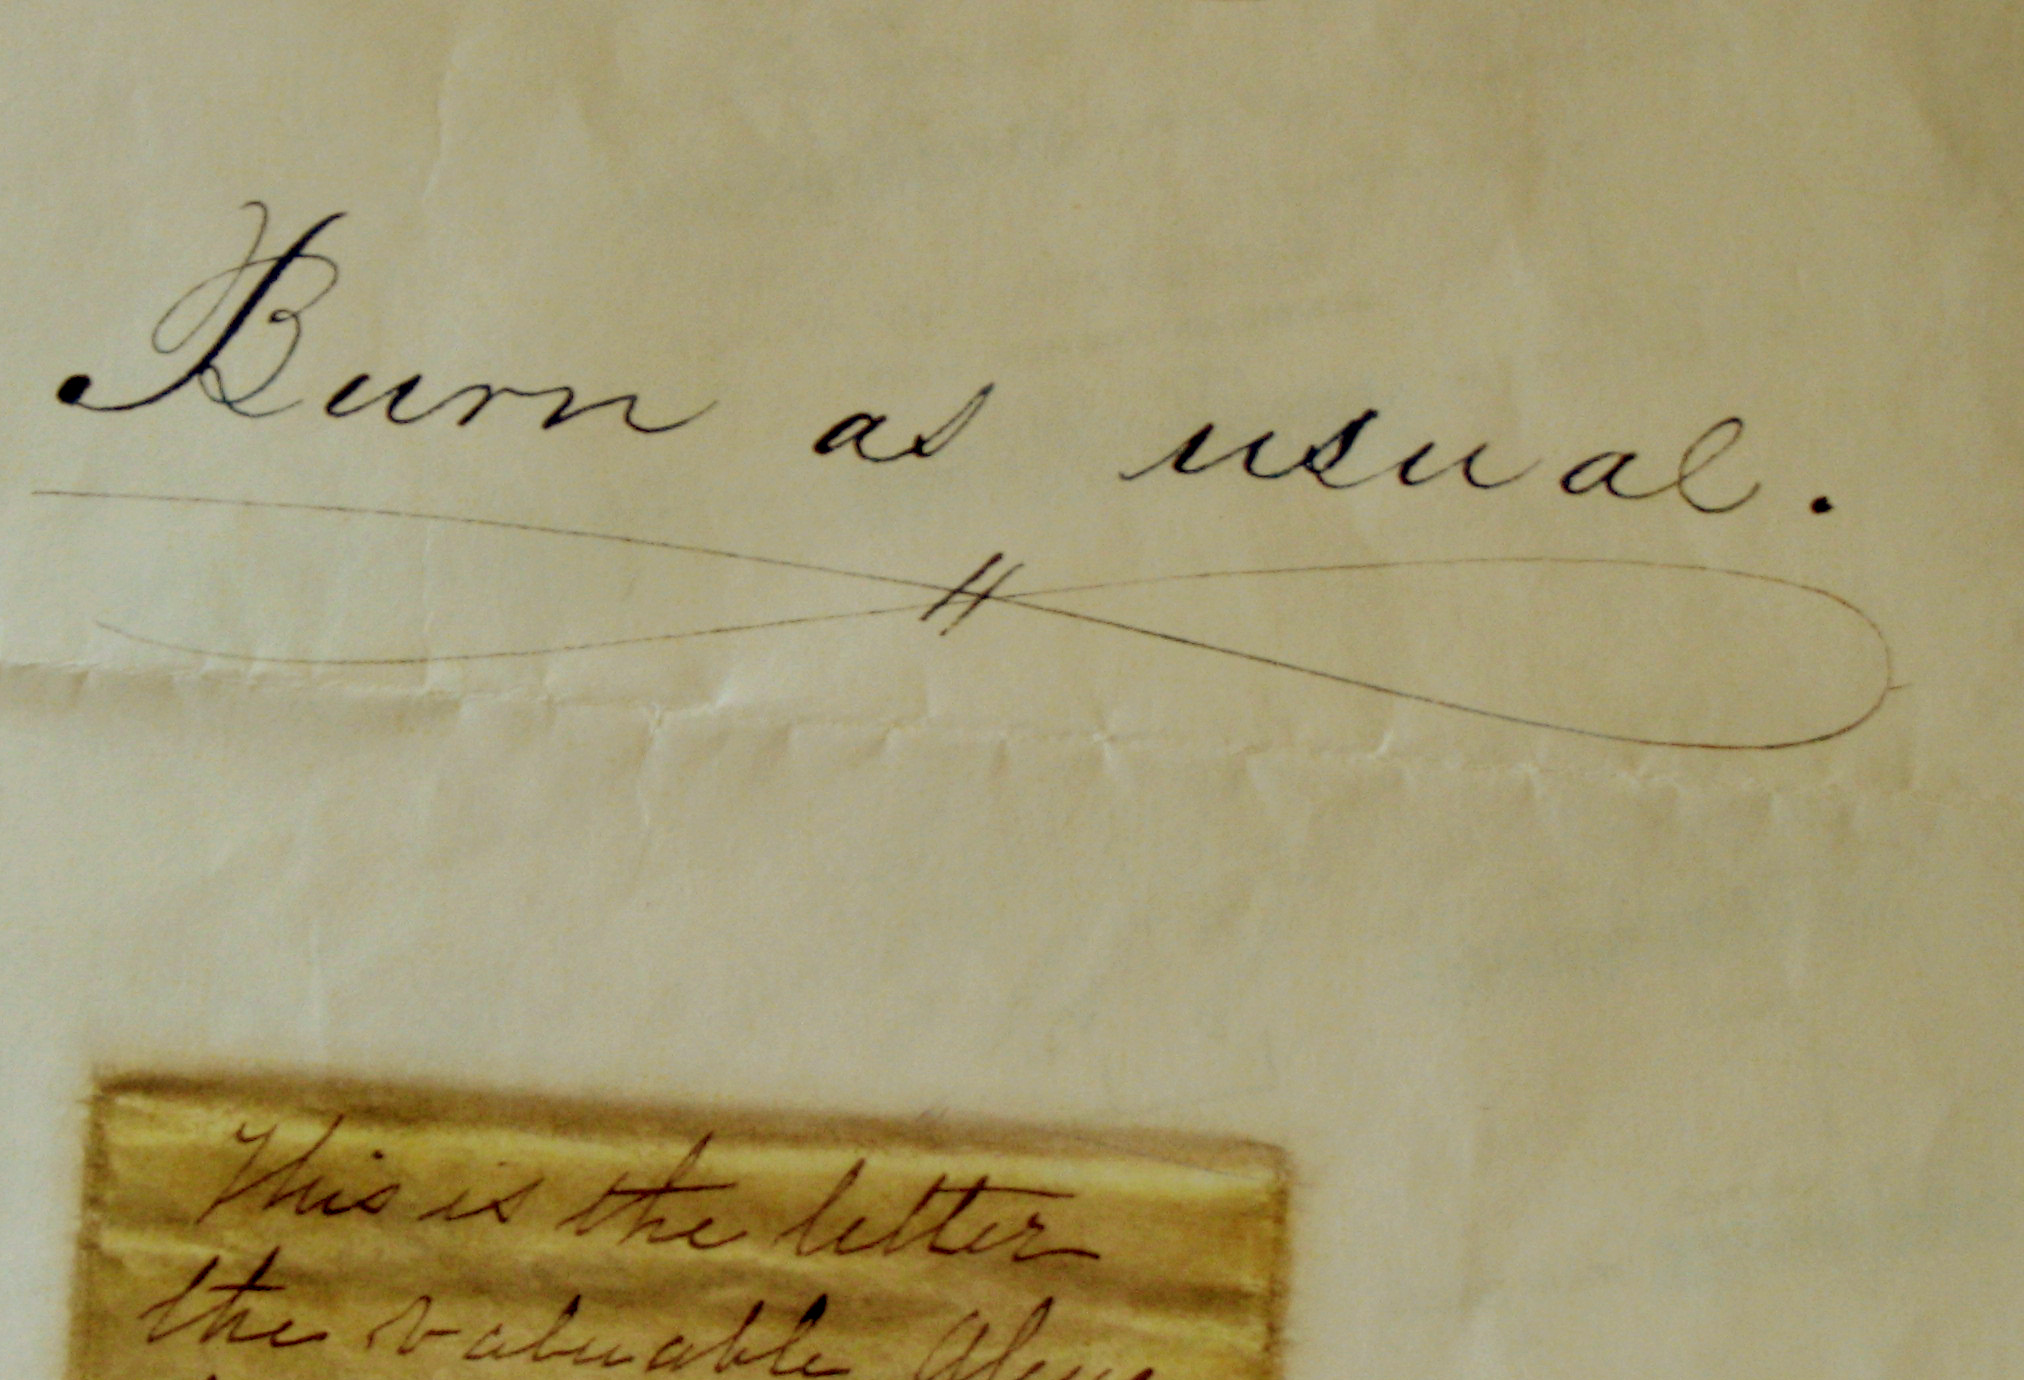 Burn as usual.
This is the letter
the valuable